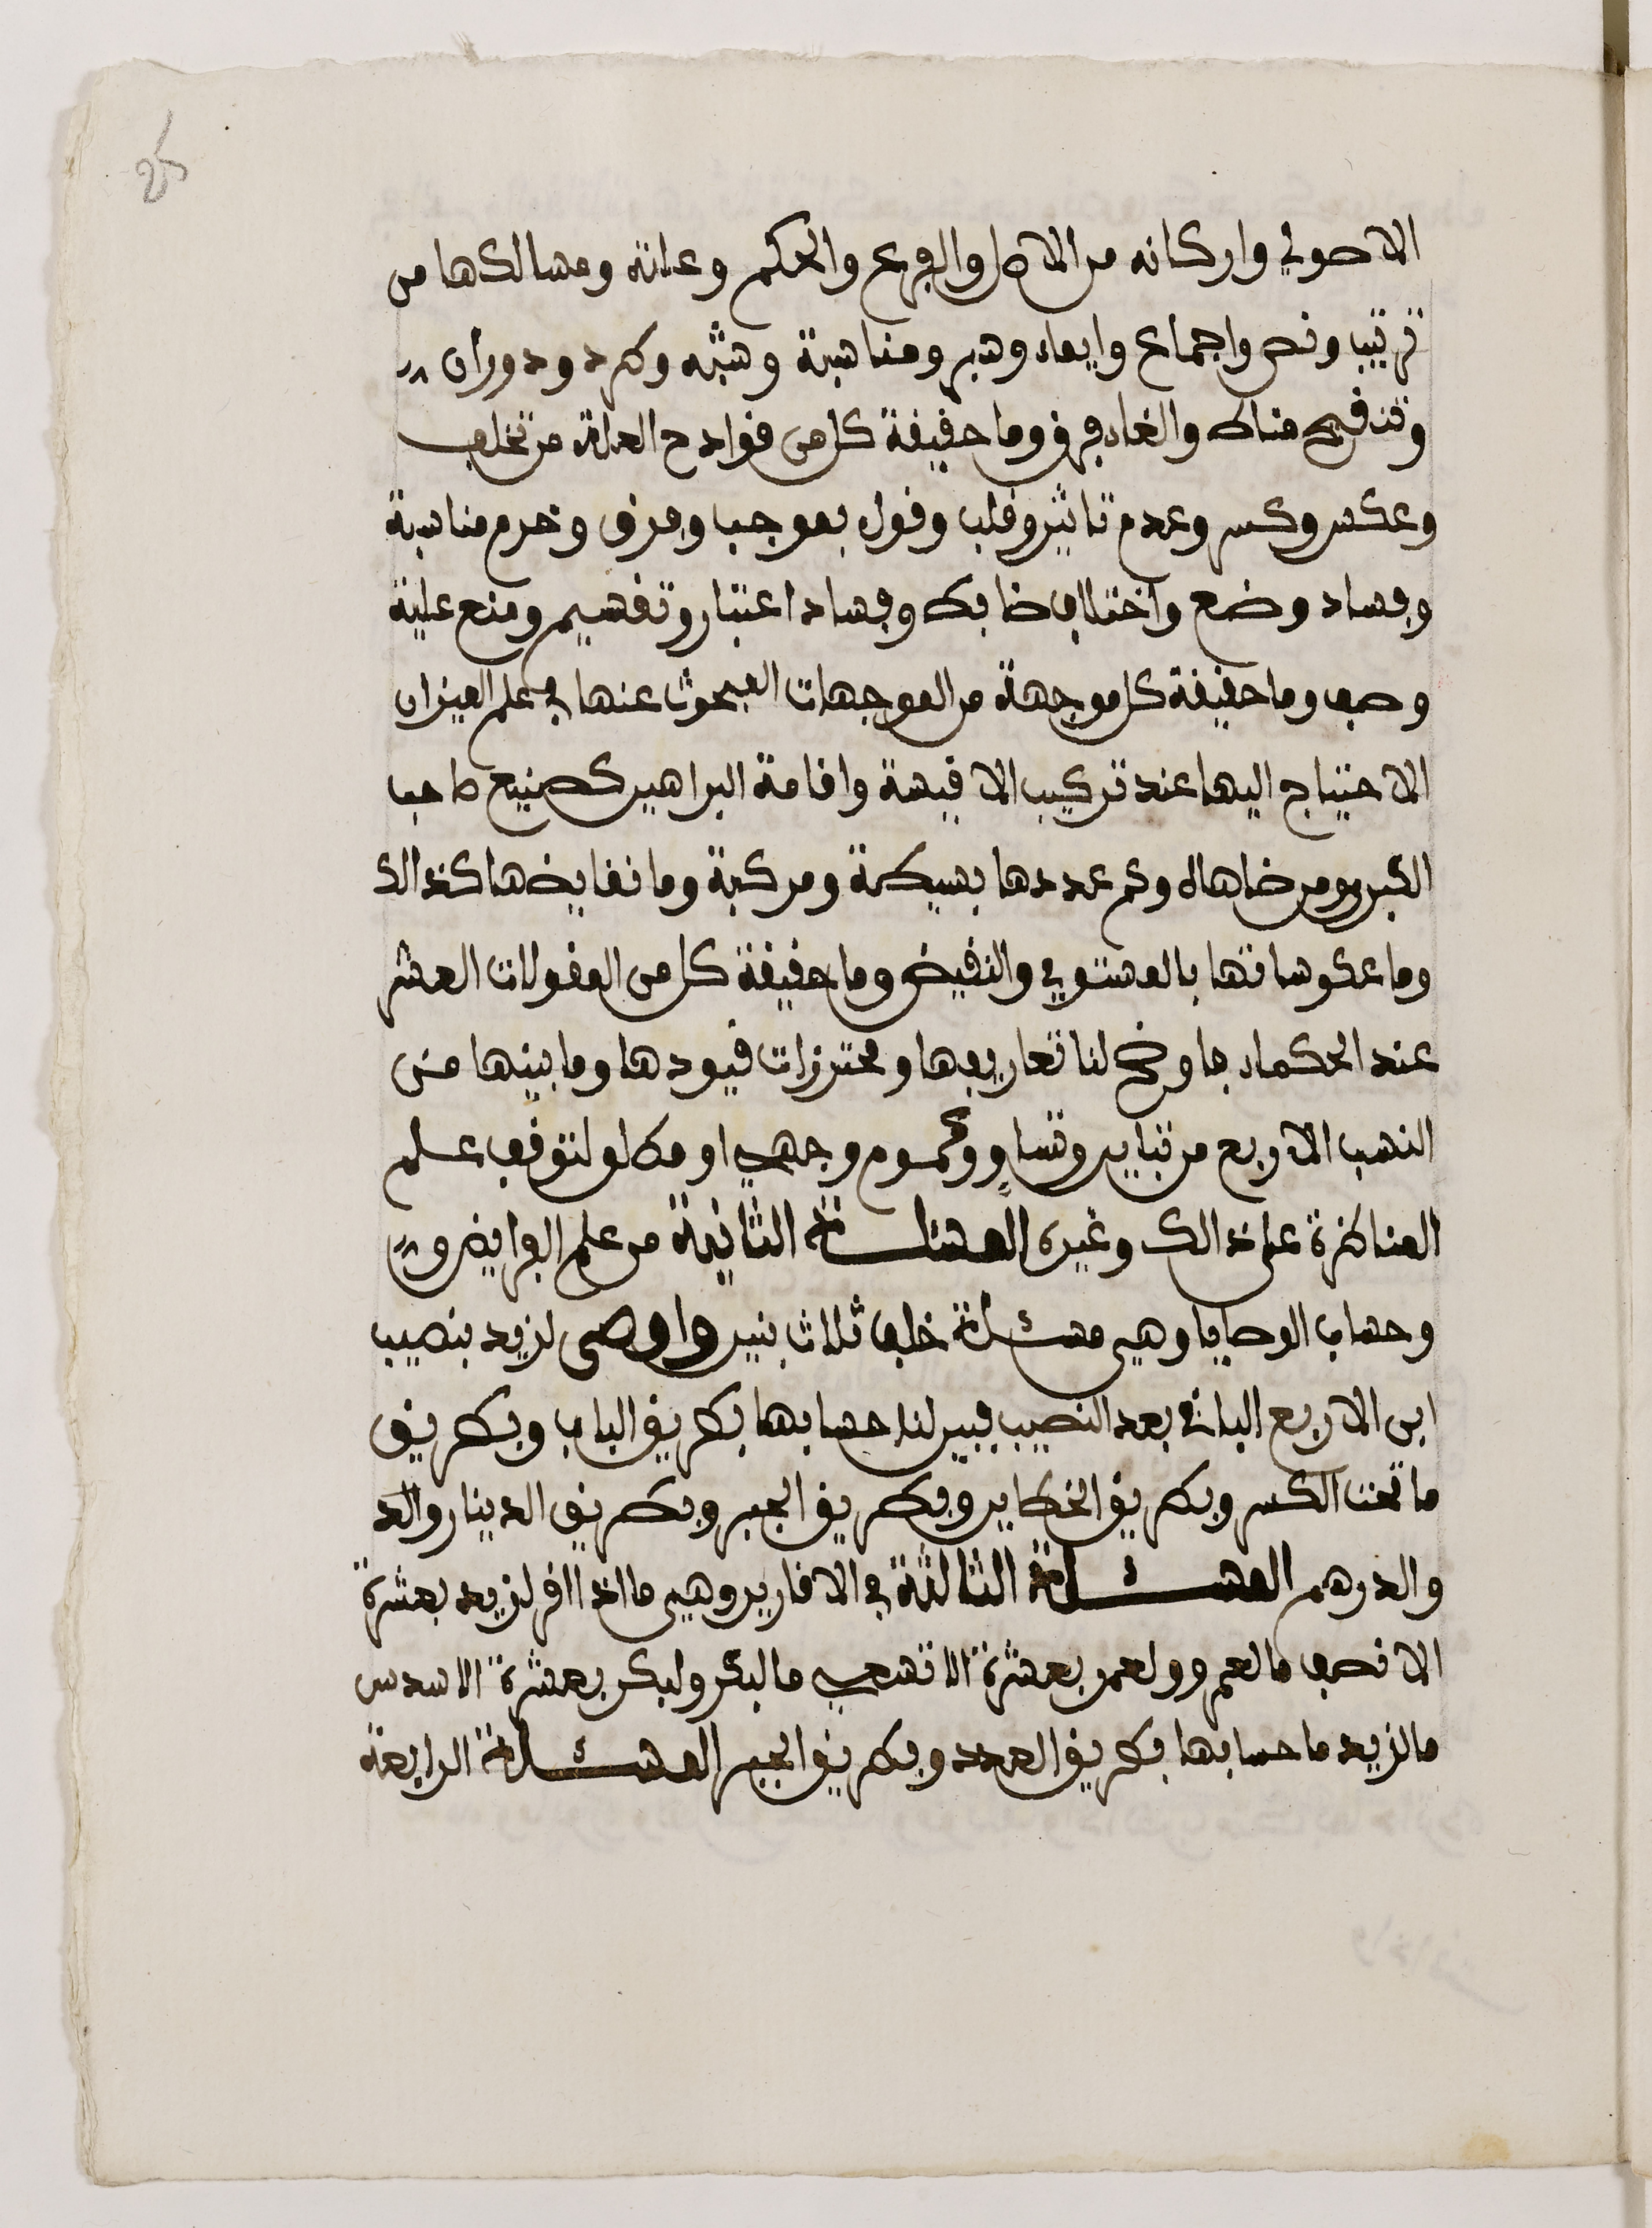 25
الاصولي واركانه من الاصل والفرع والحكم وعلته ومسالكها من
ترتيب ونص واجماع وايماء وسبر ومناسبة وشبه وطرد ودوران
وتنقيح مناط والغاء فرق وما حقيقة كل من قوادح العلة من تخلف
وعكس وكسر وعدم تاثير وقلب وقول بموجب وفرق وخرم مناسبة
وفساد وضع واختلاف ضابط وفساد اعتبار وتقسيم ومنع علية
وصف وما حقيقة كل موجهة من الموجهات المبحوث عنها في علم الميزان
الاحتياج اليها عند تركيب الاقيسة واقامة البراهين كصنيع صاحب
الكبرى ومن ضاهاه وكم عددها بسيطة ومركبة وما نقايضها كذالك
وما عكوساتها بالمستوي والنقيض وما حقيقة كل من المقولات العشر
عند الحكماء فاوضح لنا تعاريفها ومحترزات قيودها وما بينها من
النسب الاربع من تباين وتساو وعموم وجهي او مطلق لتوقف علم
المناظرة على ذالك وغيره المسئلة الثانية من علم الفرايض و
وحساب الوصايا وهي مسئلة خلف ثلاث بنين واوصى لزيد بنصيب
ابن الا ربع الباقي بعد النصيب فبين لنا حسابها بطريق الباب وبطريق
ما تحت الكسر وبطريق الخطاين وبطريق الجبر وبطريق الدينار والد
والدرهم المسئلة الثالثة في الاقارير وهي ما اذا اقر لزيد بعشرة
الا نصف ما لعمرو ولعمر بعشرة الا تسعي ما لبكر ولبكر بعشرة الا سدس
ما لزيد ما حسابها بطريق العدد وبطريق الجبر المسئلة الرابعة